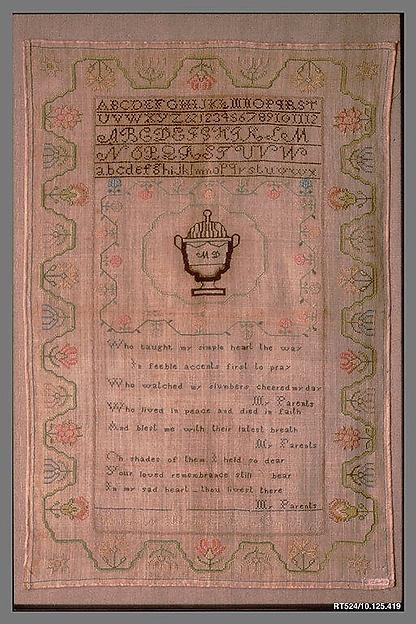 ABCDEFGHIJKLMNOPQRST
UVWXYZ&123456789101112
ABCDEFGHIKLM
NOPQRSTUVW
abcdefghijklmnopqrstuvwxyx
MD
Who taught my simple heart the way
In feeble accents first to pray
Who watched my slumbers cheered my day
My Parents
Who lived in peace and died in faith
And blest me with their latest breath
My Parents
Oh shades of them I held so dear
Your loved remembrance still bear
In my sad heart thou livest there
My Parents
RT524/10.125.419